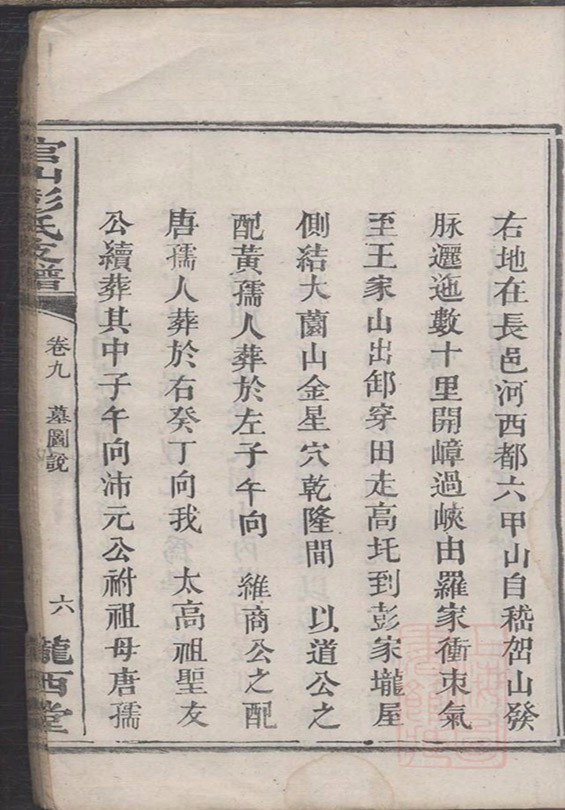 右地在長邑河西都六甲山自嵇㟏山發
脉邐迤數十里開嶂過峽由羅家衝束氣
至王家山出卸穿田走高圫到彭家壠屋
側結大蘭山金星穴乾隆間 以道公之
配黃孺人葬於左子午向 維商公之配
唐孺人葬於右癸丁向我 太高祖聖友
公續葬其中子午向沛元公祔祖母唐孺
官山彭氏支譜
卷九 墓圖說
六
隴西堂